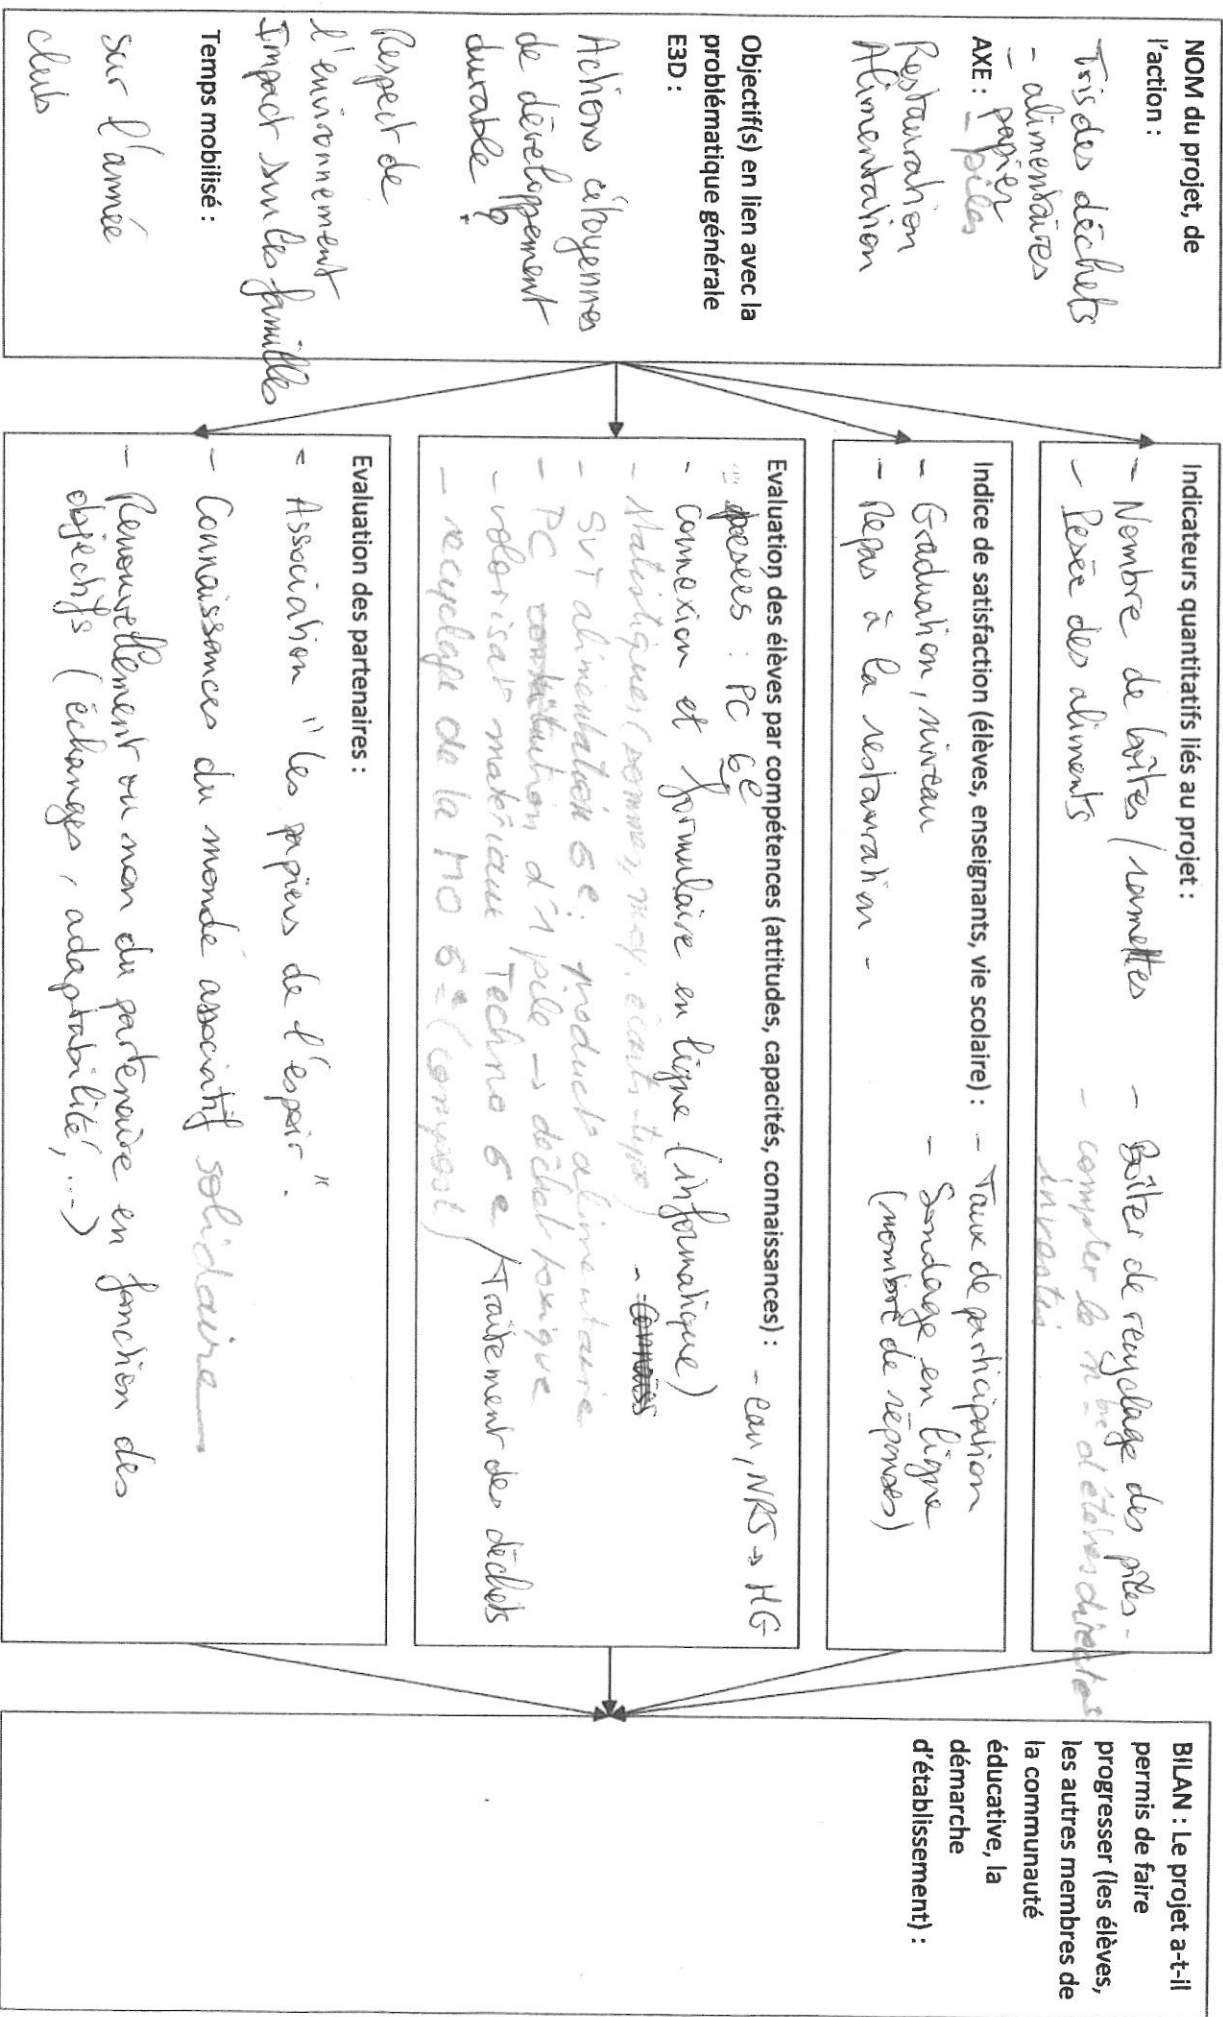 NOM du projet, de
l'action :
Tris des déchets
- alimentaires
- papier
- piles
AXE :
Restauration
Alimentation
Objectif(s) en lien avec la
problématique générale
E3D :
Actions citoyennes
de développement
durable
Respect de
l'environnement
Impact sur les familles
Temps mobilisé :
sur l'année
clubs
Indicateurs quantitatifs liés au projet :
- Nombre de boîtes / ramettes
- Pesée des aliments
- Boîtes de recyclage des piles -
- compter le nbre d'élèves directes
investis
Indice de satisfaction (élèves, enseignants, vie scolaire) :
- Graduation, niveau
- Repas à la restauration -
- Taux de participation
- Sondage en ligne
(nombre de réponses)
Evaluation des élèves par compétences (attitudes, capacités, connaissances) :
- eau, NRJ → HG
- pesées : PC 6e
- connexion et formulaire en ligne (informatique)
- Statistiques (sommes, moy, écarts-type)
- SVT alimentation 6e : product° alimentaire
- PC constitution d'1 pile → déchet toxique
- valorisat° matériaux Techno 6e / Traitement des déchets
- recyclage de la MO 6e (compost)
Evaluation des partenaires :
- Association "les papiers de l'espoir".
- Connaissances du monde associatif solidaire
- Renouvellement ou non du partenaire en fonction des
objectifs (échanges, adaptabilité, ...)
BILAN : Le projet a-t-il
permis de faire
progresser (les élèves,
les autres membres de
la communauté
éducative, la
démarche
d'établissement) :